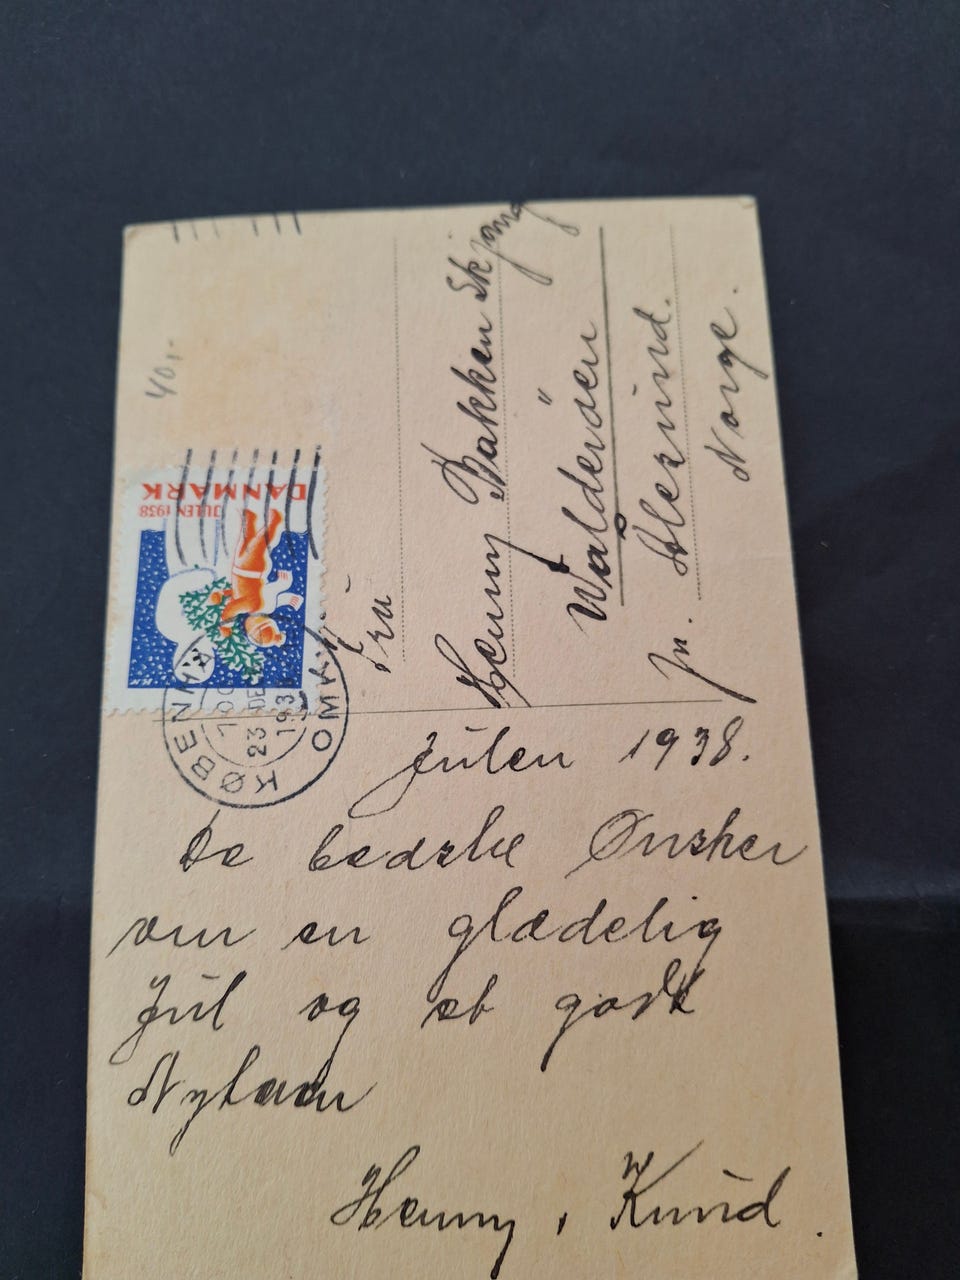 40,-
JULEN 1938
DANMARK
KØBENHAVN
OMK.
23 DE
193
Fru
Henny Bakken Skjong
Walderöen
pr. Aalesund.
Norge.
Julen 1938.
De bedste Ønsker
om en glædelig
Jul og et godt
Nytaar
Henny, Knud.